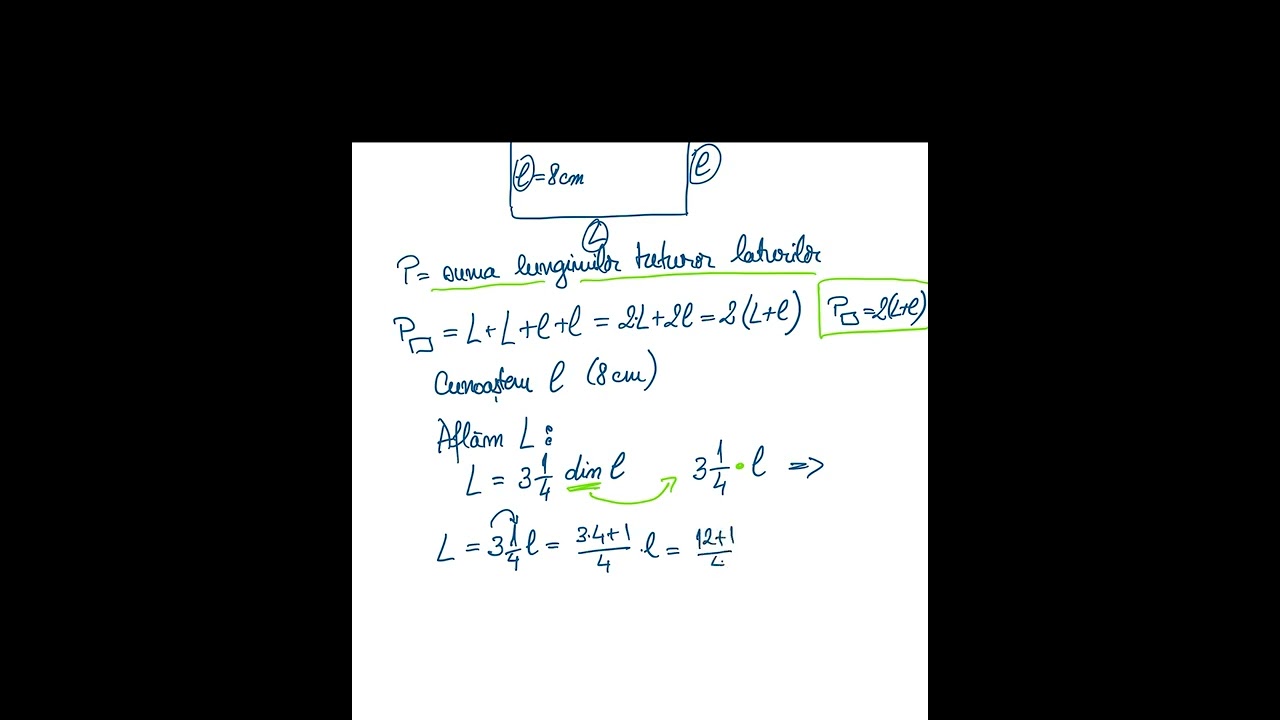 l=8cm l
L
P= suma lungimilor tuturor laturilor
P□ = L+L+l+l = 2·L+2l = 2(L+l) P□=2(L+l)
Cunoaștem l (8cm)
Aflăm L:
L = 3 1/4 din l 3 1/4 · l =>
L = 3 1/4 l = (3·4+1)/4 · l = (12+1)/4